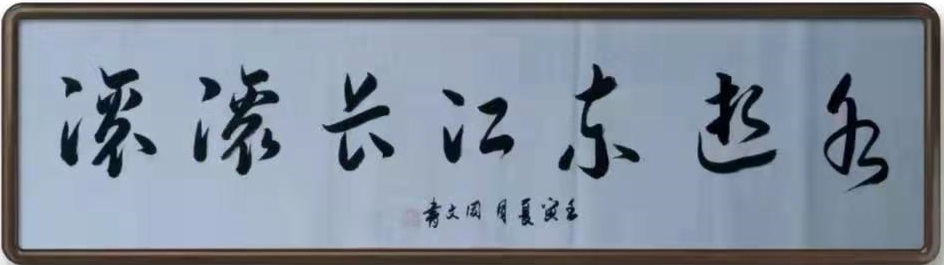 滚滚长江东逝水
壬寅夏月文書